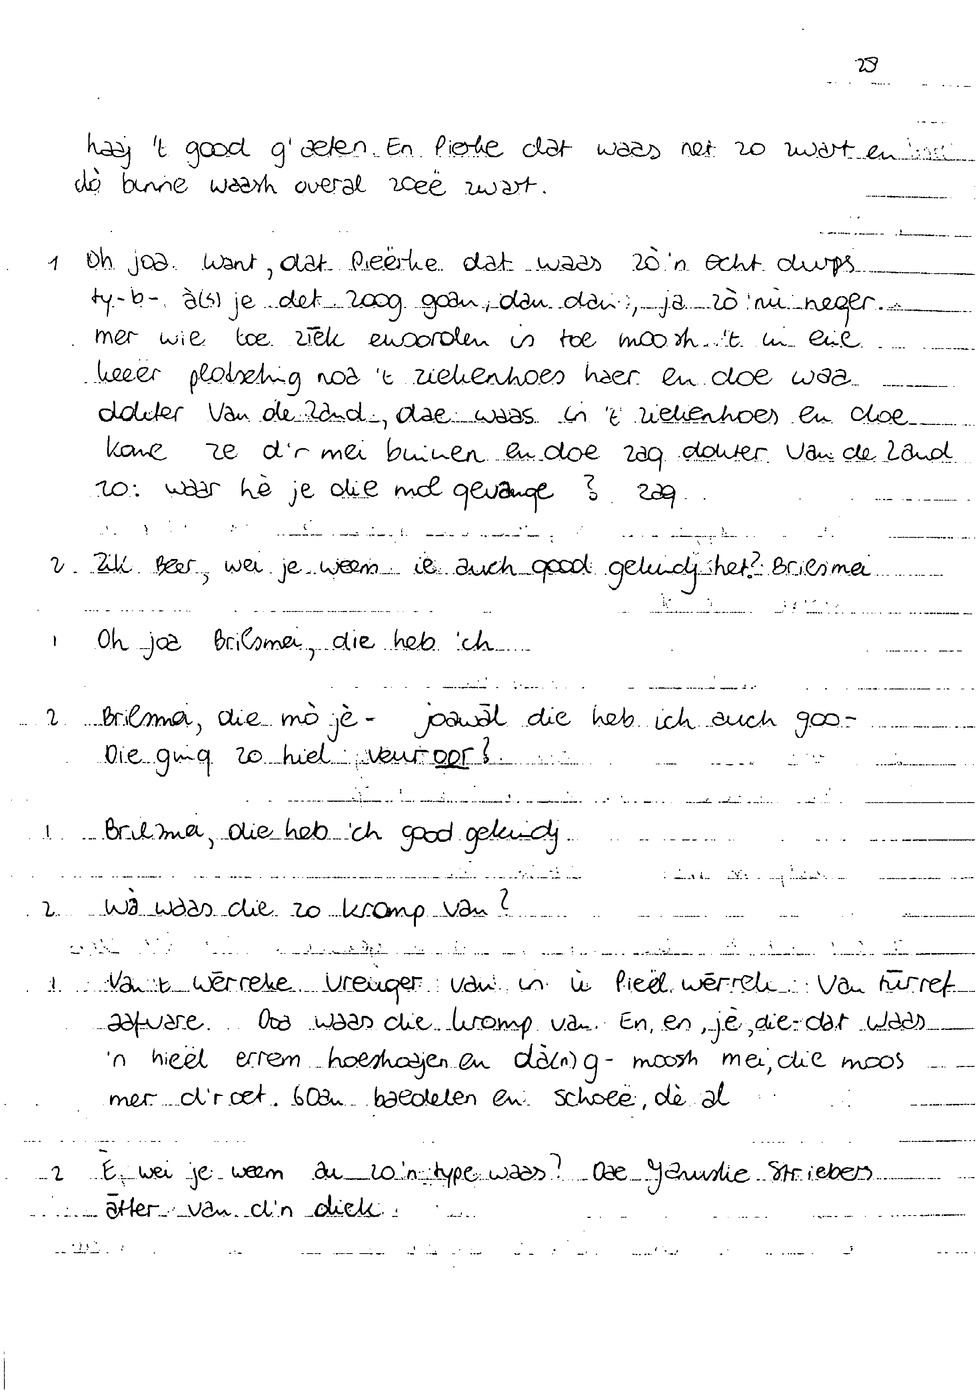 29
haaj 't good g'aeten. En Pierke dat waas net zo zwart en
dò binne waash overal zoeë zwart.
1 Oh joa. want, dat Pieërke dat waas zò'n echt durps
ty-b-. à(s) je det zoog goan, dan dan:, ja zò'nü neger.
mer wie toe ziek ewoorden is toe moosh 't in eine
keeër plotseling noa 't ziekenhoes haer en doe waa
dokter Van de Zand, dae waas in 't ziekenhoes en doe
kome ze d'r mei binnen en doe zag dokter Van de Zand
zo: waar hè je die mol gevange ? zag
2. Zik Beer, wei je weem ie auch good gekindj het? Brilsmei
1 Oh joa Brilsmei, die heb 'ch
2 Brilsmei, die mò jè - joawāl die heb ich auch goo-
Die ging zo hiel veuroor?
1. Brilsmei, die heb 'ch good gekindj
2. Wà waas die zo kromp van?
1. Van 't wērreke vreuger van in ü Pieël wērrek. Van tūrref
aafvare. Doa waas die kromp van. En, en, jè, die-dat waas
'n hieël errem hoeshoajen en dà(n) g- moosh mei, die moos
mer d'r oet. Goan baedelen en schoeë, dè al
2 Ē, wei je weem au zo'n type waas? Dae Yannuske Striebers
ātter van d'n diek.